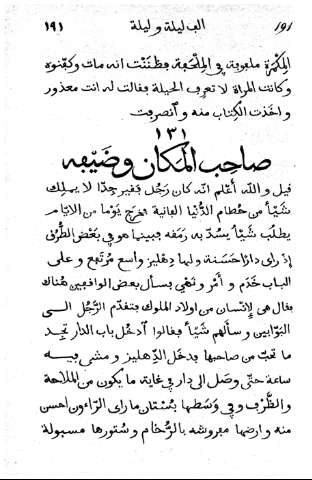 ١٩١ الف ليلة و ليلة ١٩١
المِكْمرة ملفوفة في المِلْحَفة فظَنَنْت انه مات وكفّنوه
وكانت المراة لا تعرف الحيلة فقالت له انت معذور
واخذت الكتاب منه وانصرفت
١٣١
صاحب المكان وضَيْفه
قيل والله اعلم انه كان رَجُل فقير جدّا لا يملك
شَيْأً من حُطام الدُّنْيا الفانية فخرج يَوْما من الايام
يطلب شَيْأً يسُدّ به رَمَقه فبينما هو في بَعْض الطُرُق
اذ راى دارًا حَسَنة ولها دِهْليز واسع مُرْتفع و على
الباب خَدَم و أَمْر و نَهْي فسأل بعض الواقفين هُناك
فقال هي لاِنْسان من اولاد الملوك فتقدّم الرَّجُل الى
البَوّابين وسألهم شَيْأً فقالوا ادخُل باب الدار تجِد
ما تحبّ من صاحبها فدخل الدِّهْليز ومشى فيه
ساعة حتّى وصل الى دار في غاية ما يكون من المَلاحة
والظَّرْف وفي وَسَطها بُسْتان ما راى الرّاءون احسن
منه و ارضها مفروشة بالرُّخام و سُتورها مسبولة